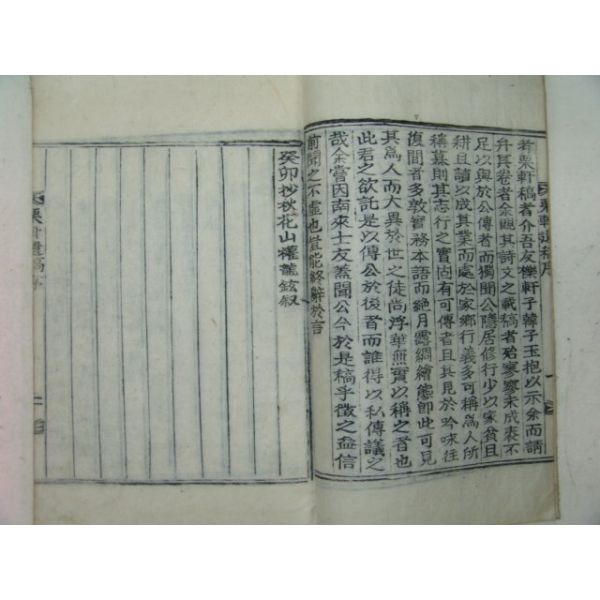 若栗軒稿者介吾友櫟軒子韓子玉抱以示余而請
弁其卷者余䦧其詩文之載稿者殆寥寥未成袠不
足以與於公傳者而獨聞公隱居修行少以家貧且
耕且讀以成其業而處於家鄉行義多可稱爲人所
稱纂則其志行之實固有可傳者且其見於吟咏往
復間者多敦實務本語而絶月露綢繪態卽此可見
其爲人而大異於世之徒尚浮華無實以稱之者也
此君之欲託是以傳公於後者而誰得以私傳議之
哉余嘗因南來士友盖聞公今於是稿乎徵之益信
前聞之不虛也豈能終辭於言
癸卯抄秋花山權龍鉉叙